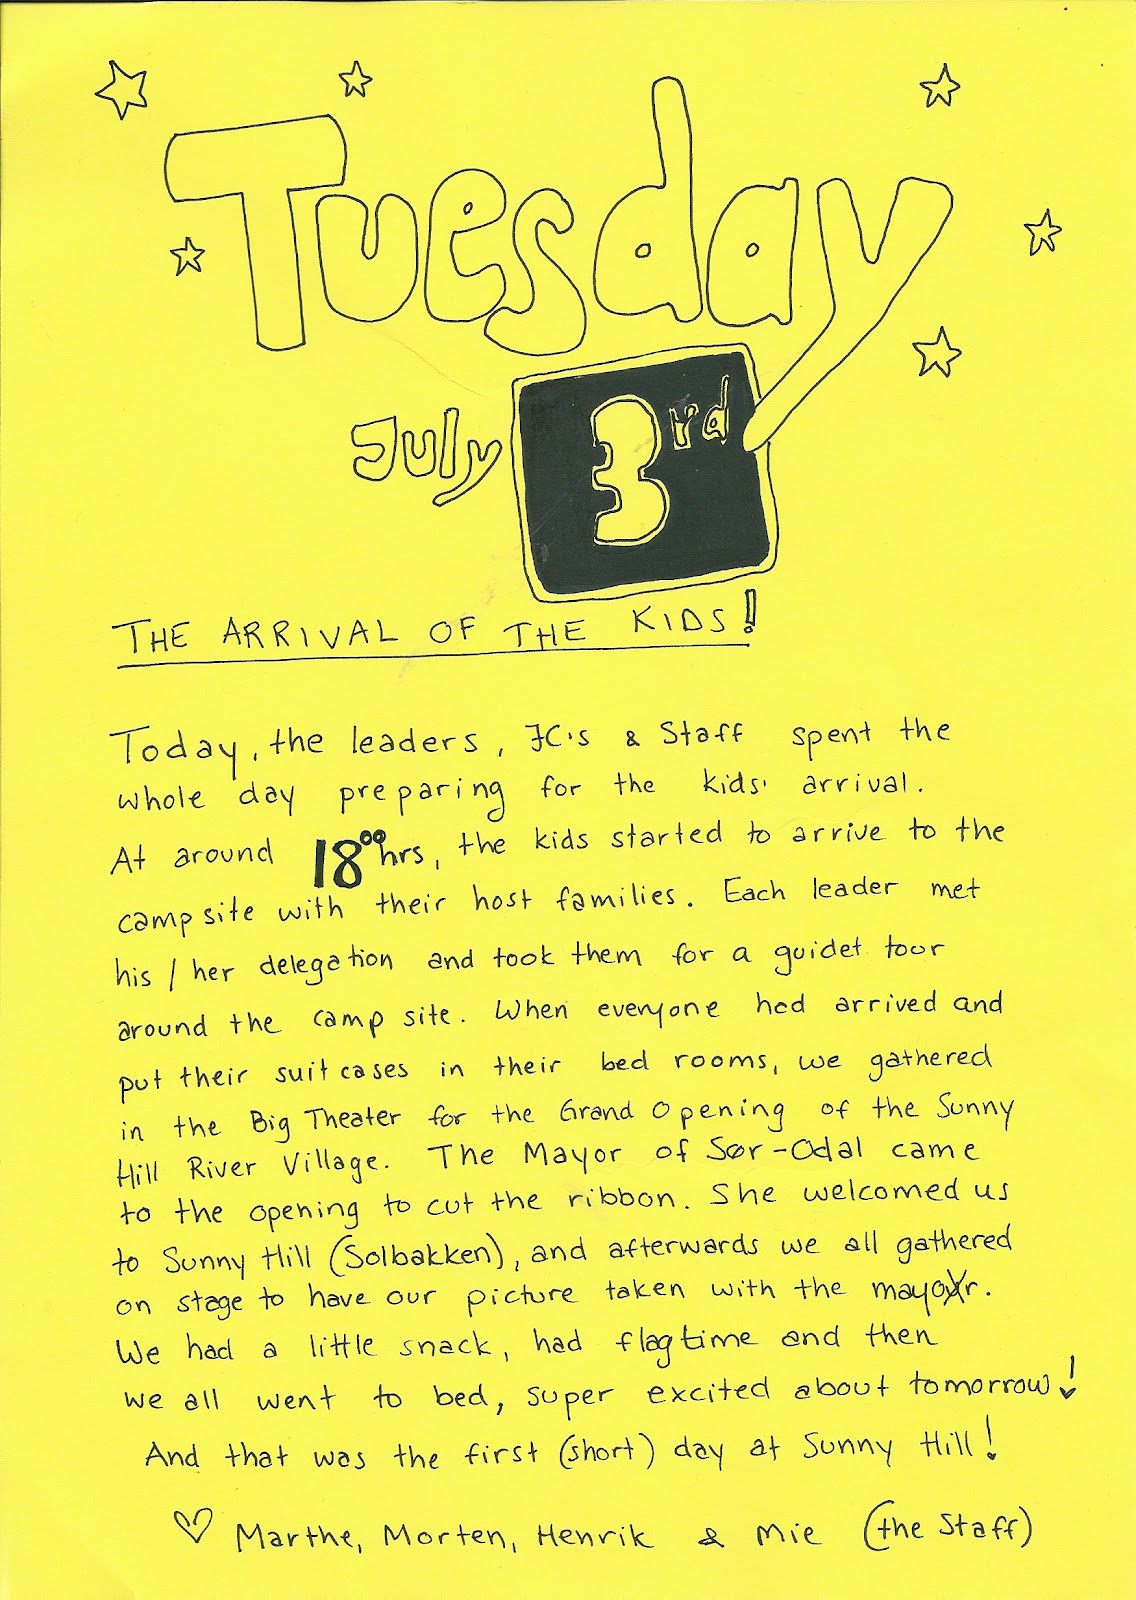 Tuesday
July 3rd
THE ARRIVAL OF THE KIDS!
Today, the leaders, JC's & Staff spent the
whole day preparing for the kids' arrival.
At around 18⁰⁰hrs, the kids started to arrive to the
camp site with their host families. Each leader met
his / her delegation and took them for a guidet tour
around the camp site. When everyone had arrived and
put their suitcases in their bed rooms, we gathered
in the Big Theater for the Grand Opening of the Sunny
Hill River Village. The Mayor of Sør-Odal came
to the opening to cut the ribbon. She welcomed us
to Sunny Hill (Solbakken), and afterwards we all gathered
on stage to have our picture taken with the mayor.
We had a little snack, had flagtime and then
we all went to bed, super excited about tomorrow!
And that was the first (short) day at Sunny Hill!
♡ Marthe, Morten, Henrik & Mie (the Staff)